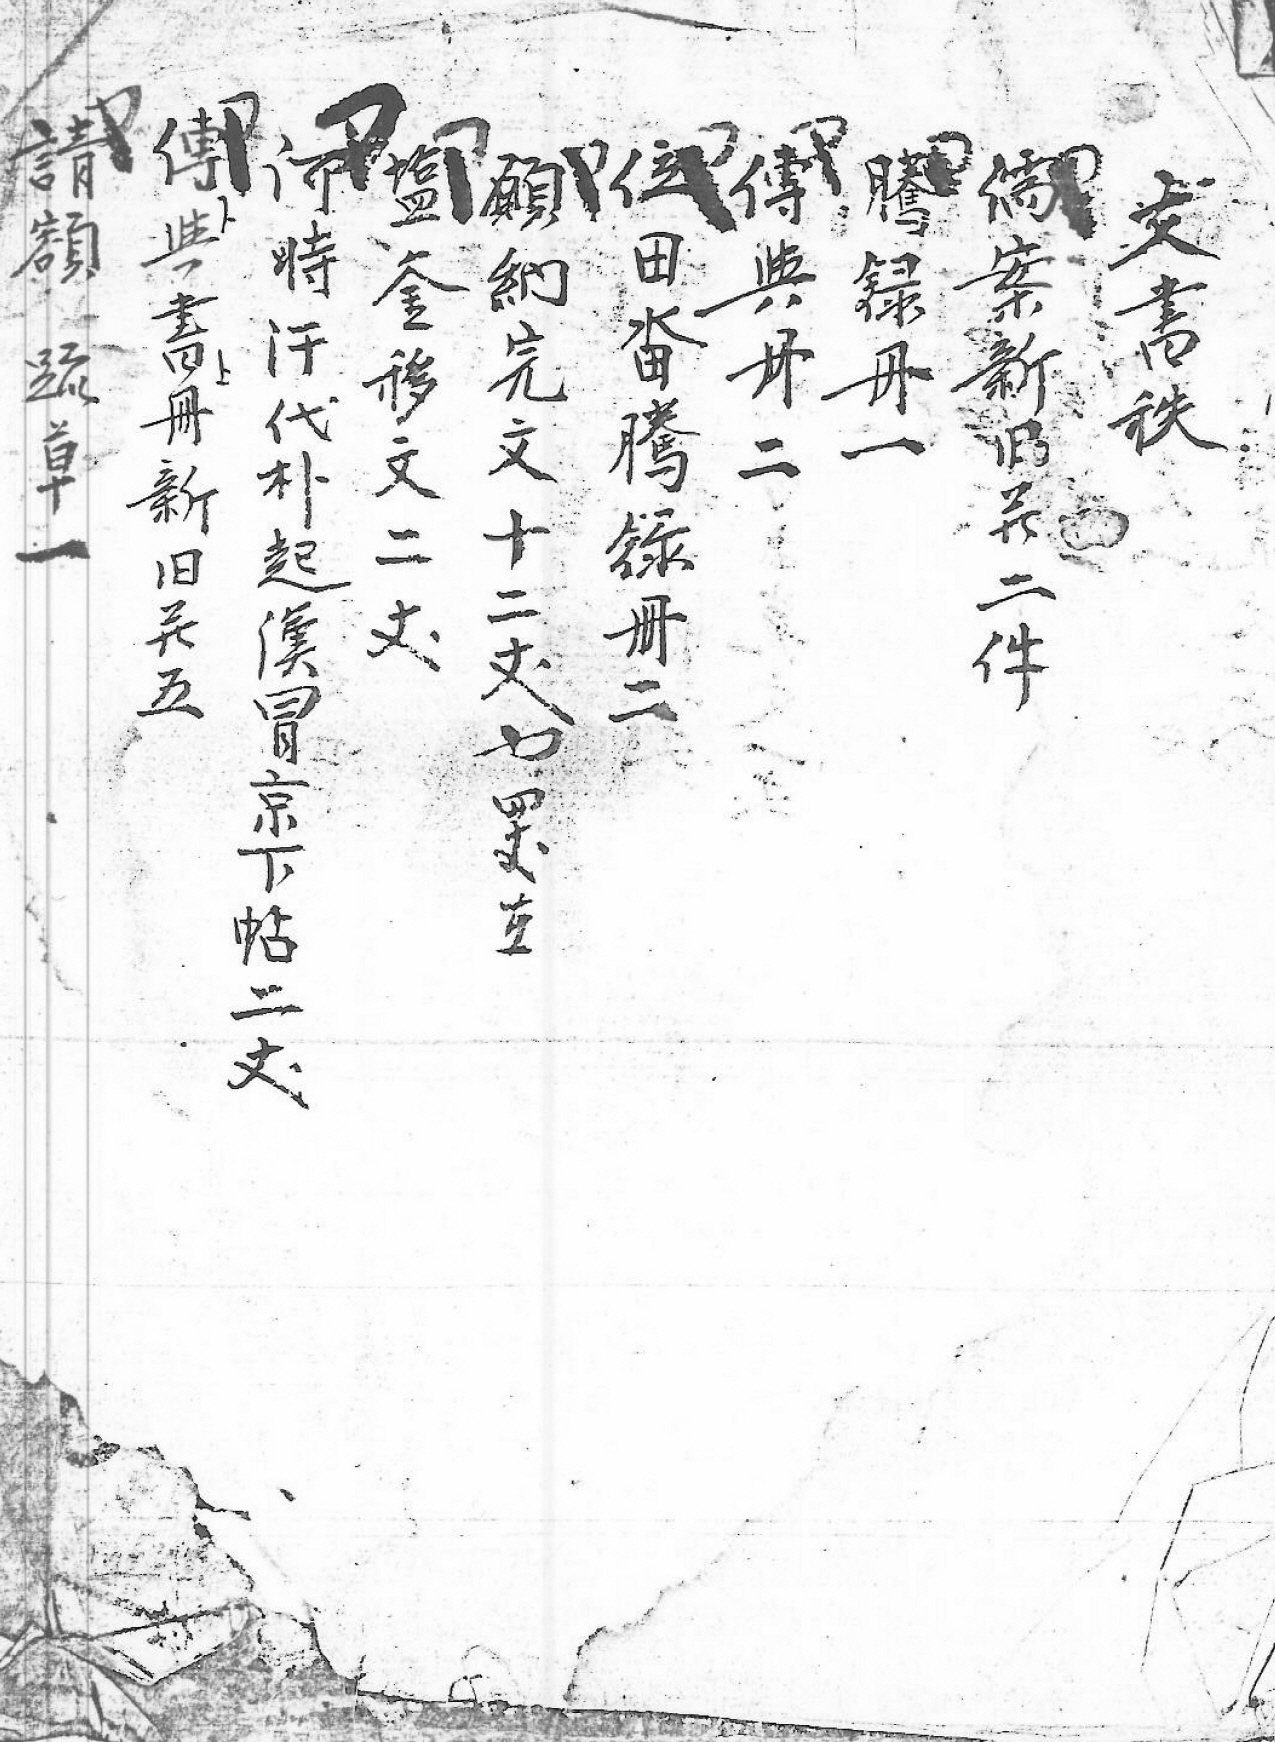 文書秩
儒案新旧并二件
謄録冊一
傳與冊二
位田畓謄録冊二
願納完文十二丈
塩釜移文二丈
時汗代朴起漢冒京下帖二丈
傳與書冊新旧并五
請額疏草一